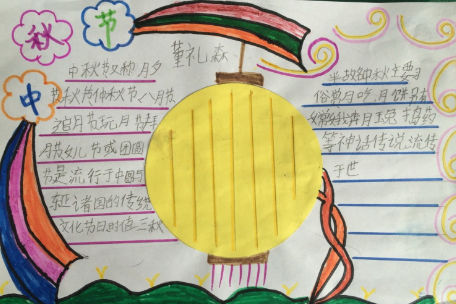 中
秋
节
董礼森
中秋节又称月夕
节秋节仲秋节八月节
追月节玩月节拜
月节女儿节或团圆
节是流行于中国与
东亚诸国的传统
文化节日时值三秋
半故
俗赏月吃月饼
嫦娥奔月玉兔捣药
等神话传说流传
于世